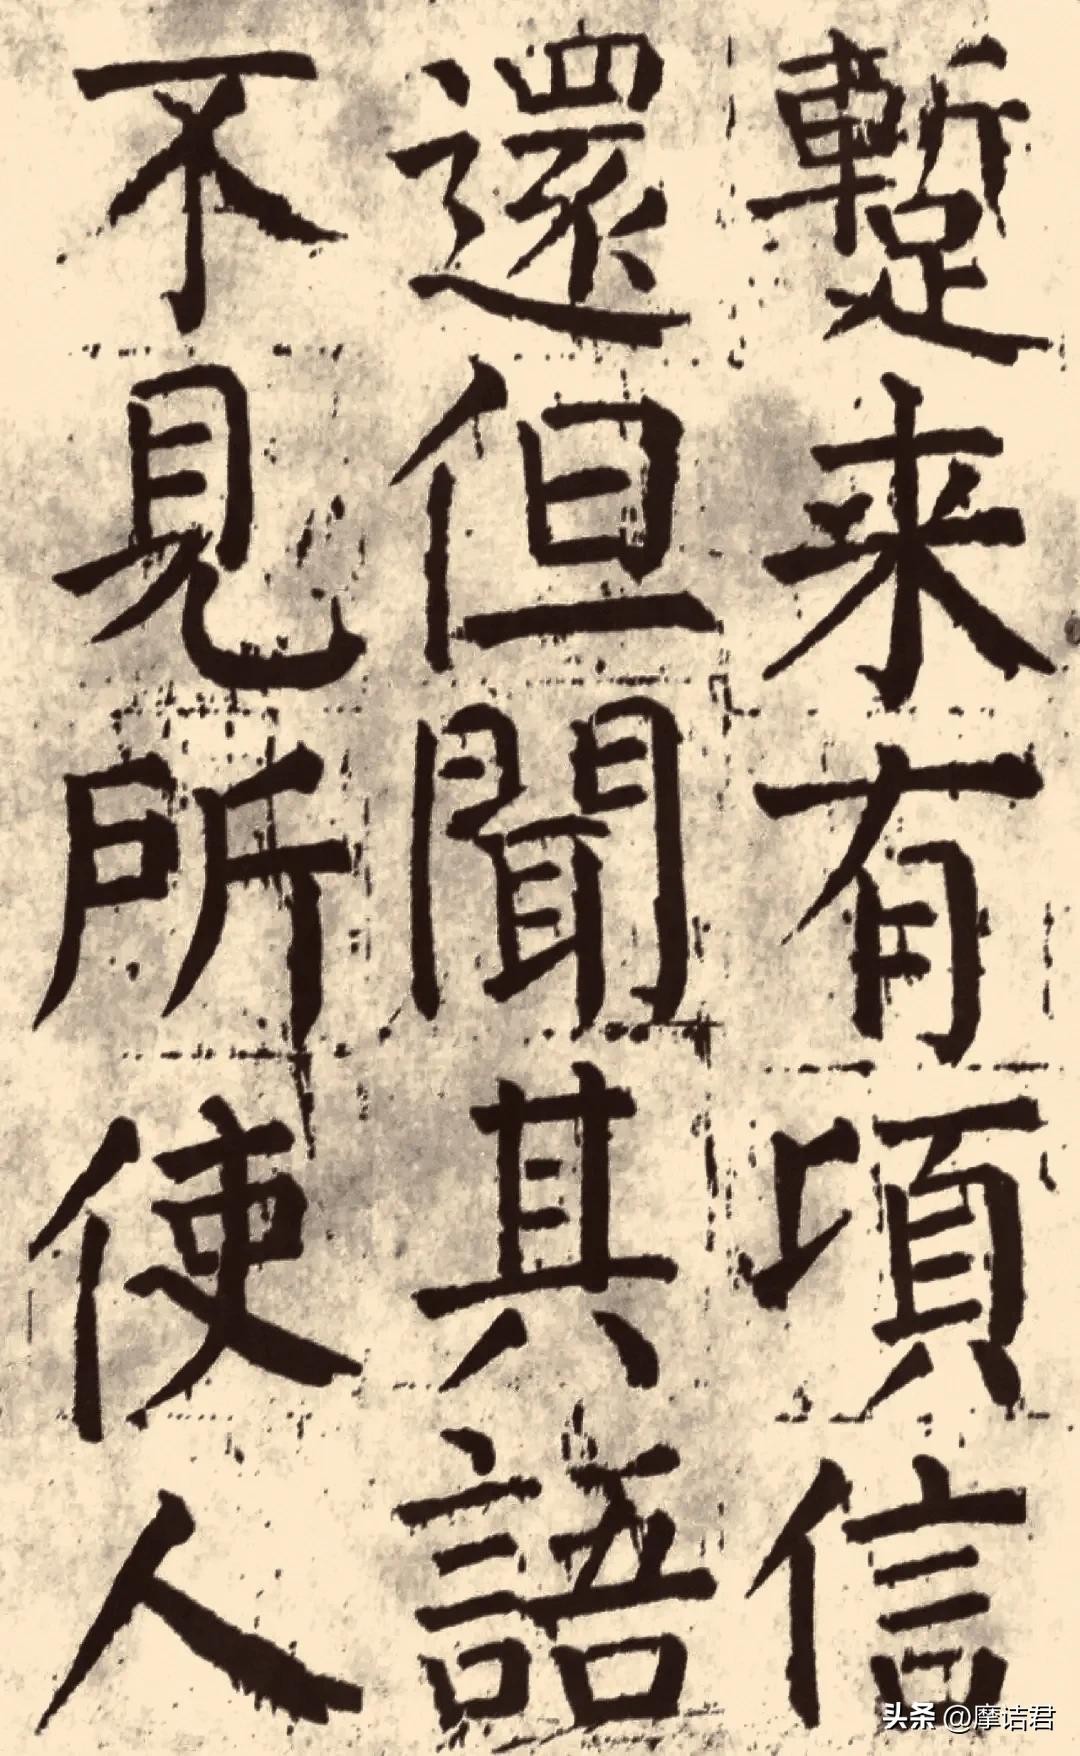 蹔来有頃信
還但聞其語
不見所使人
头条 @摩诘君